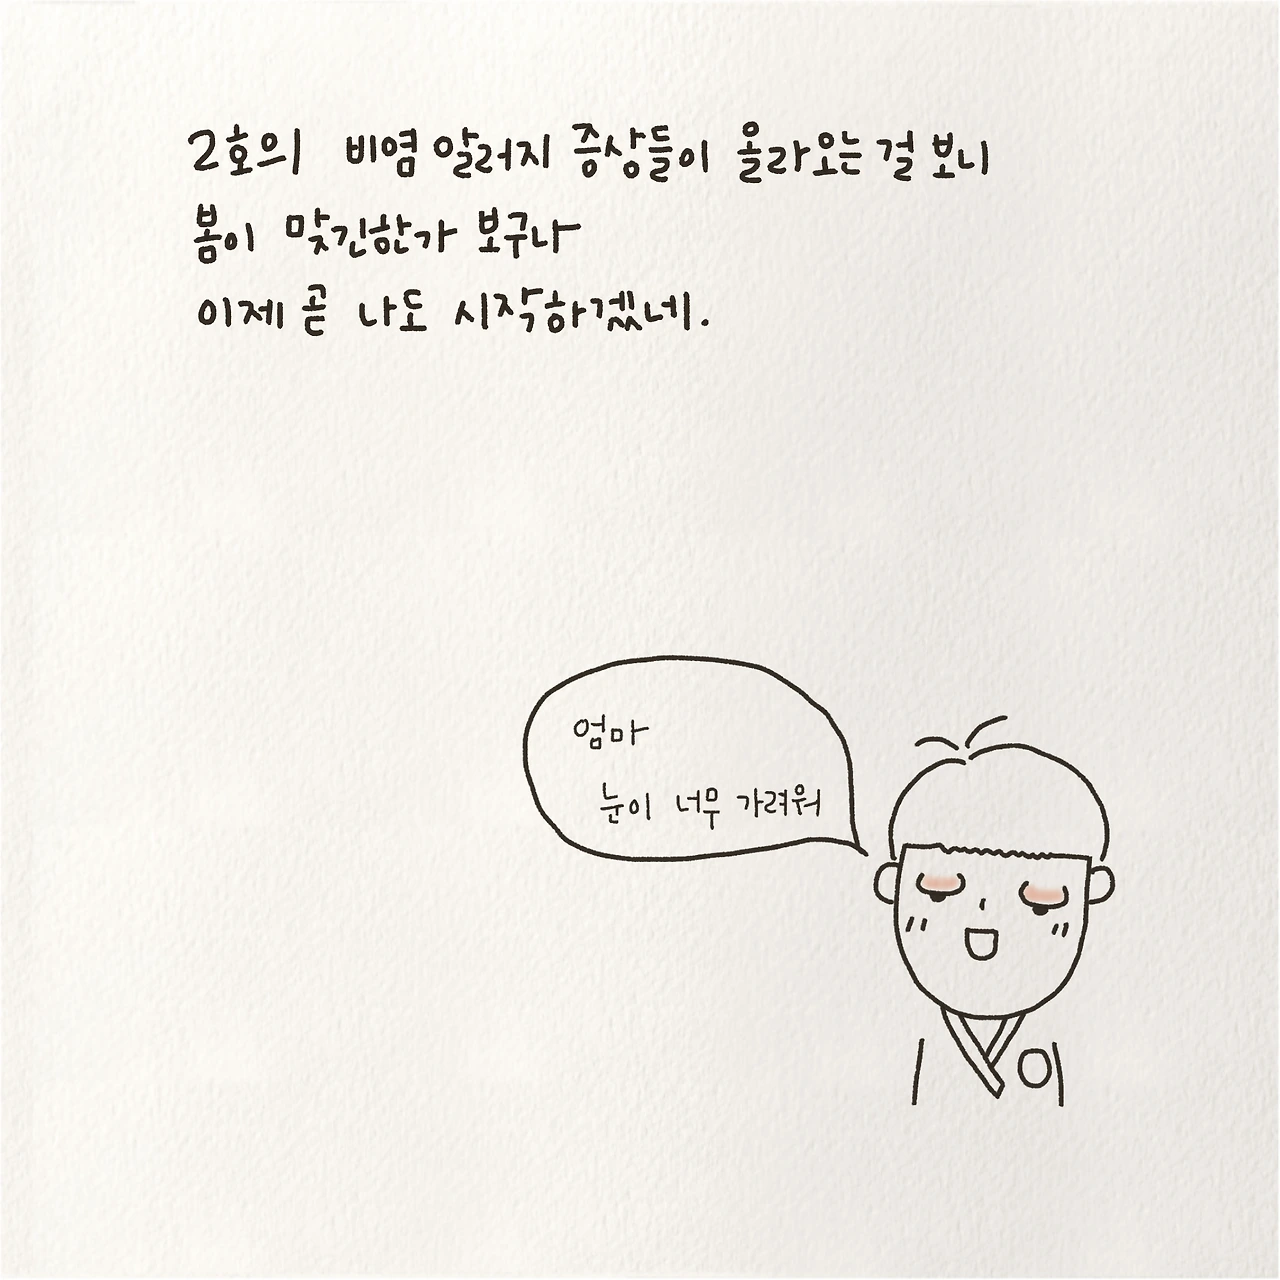 2호의 비염 알러지 증상들이 올라오는 걸 보니
봄이 맞긴한가 보구나
이제 곧 나도 시작하겠네.
엄마
눈이 너무 가려워